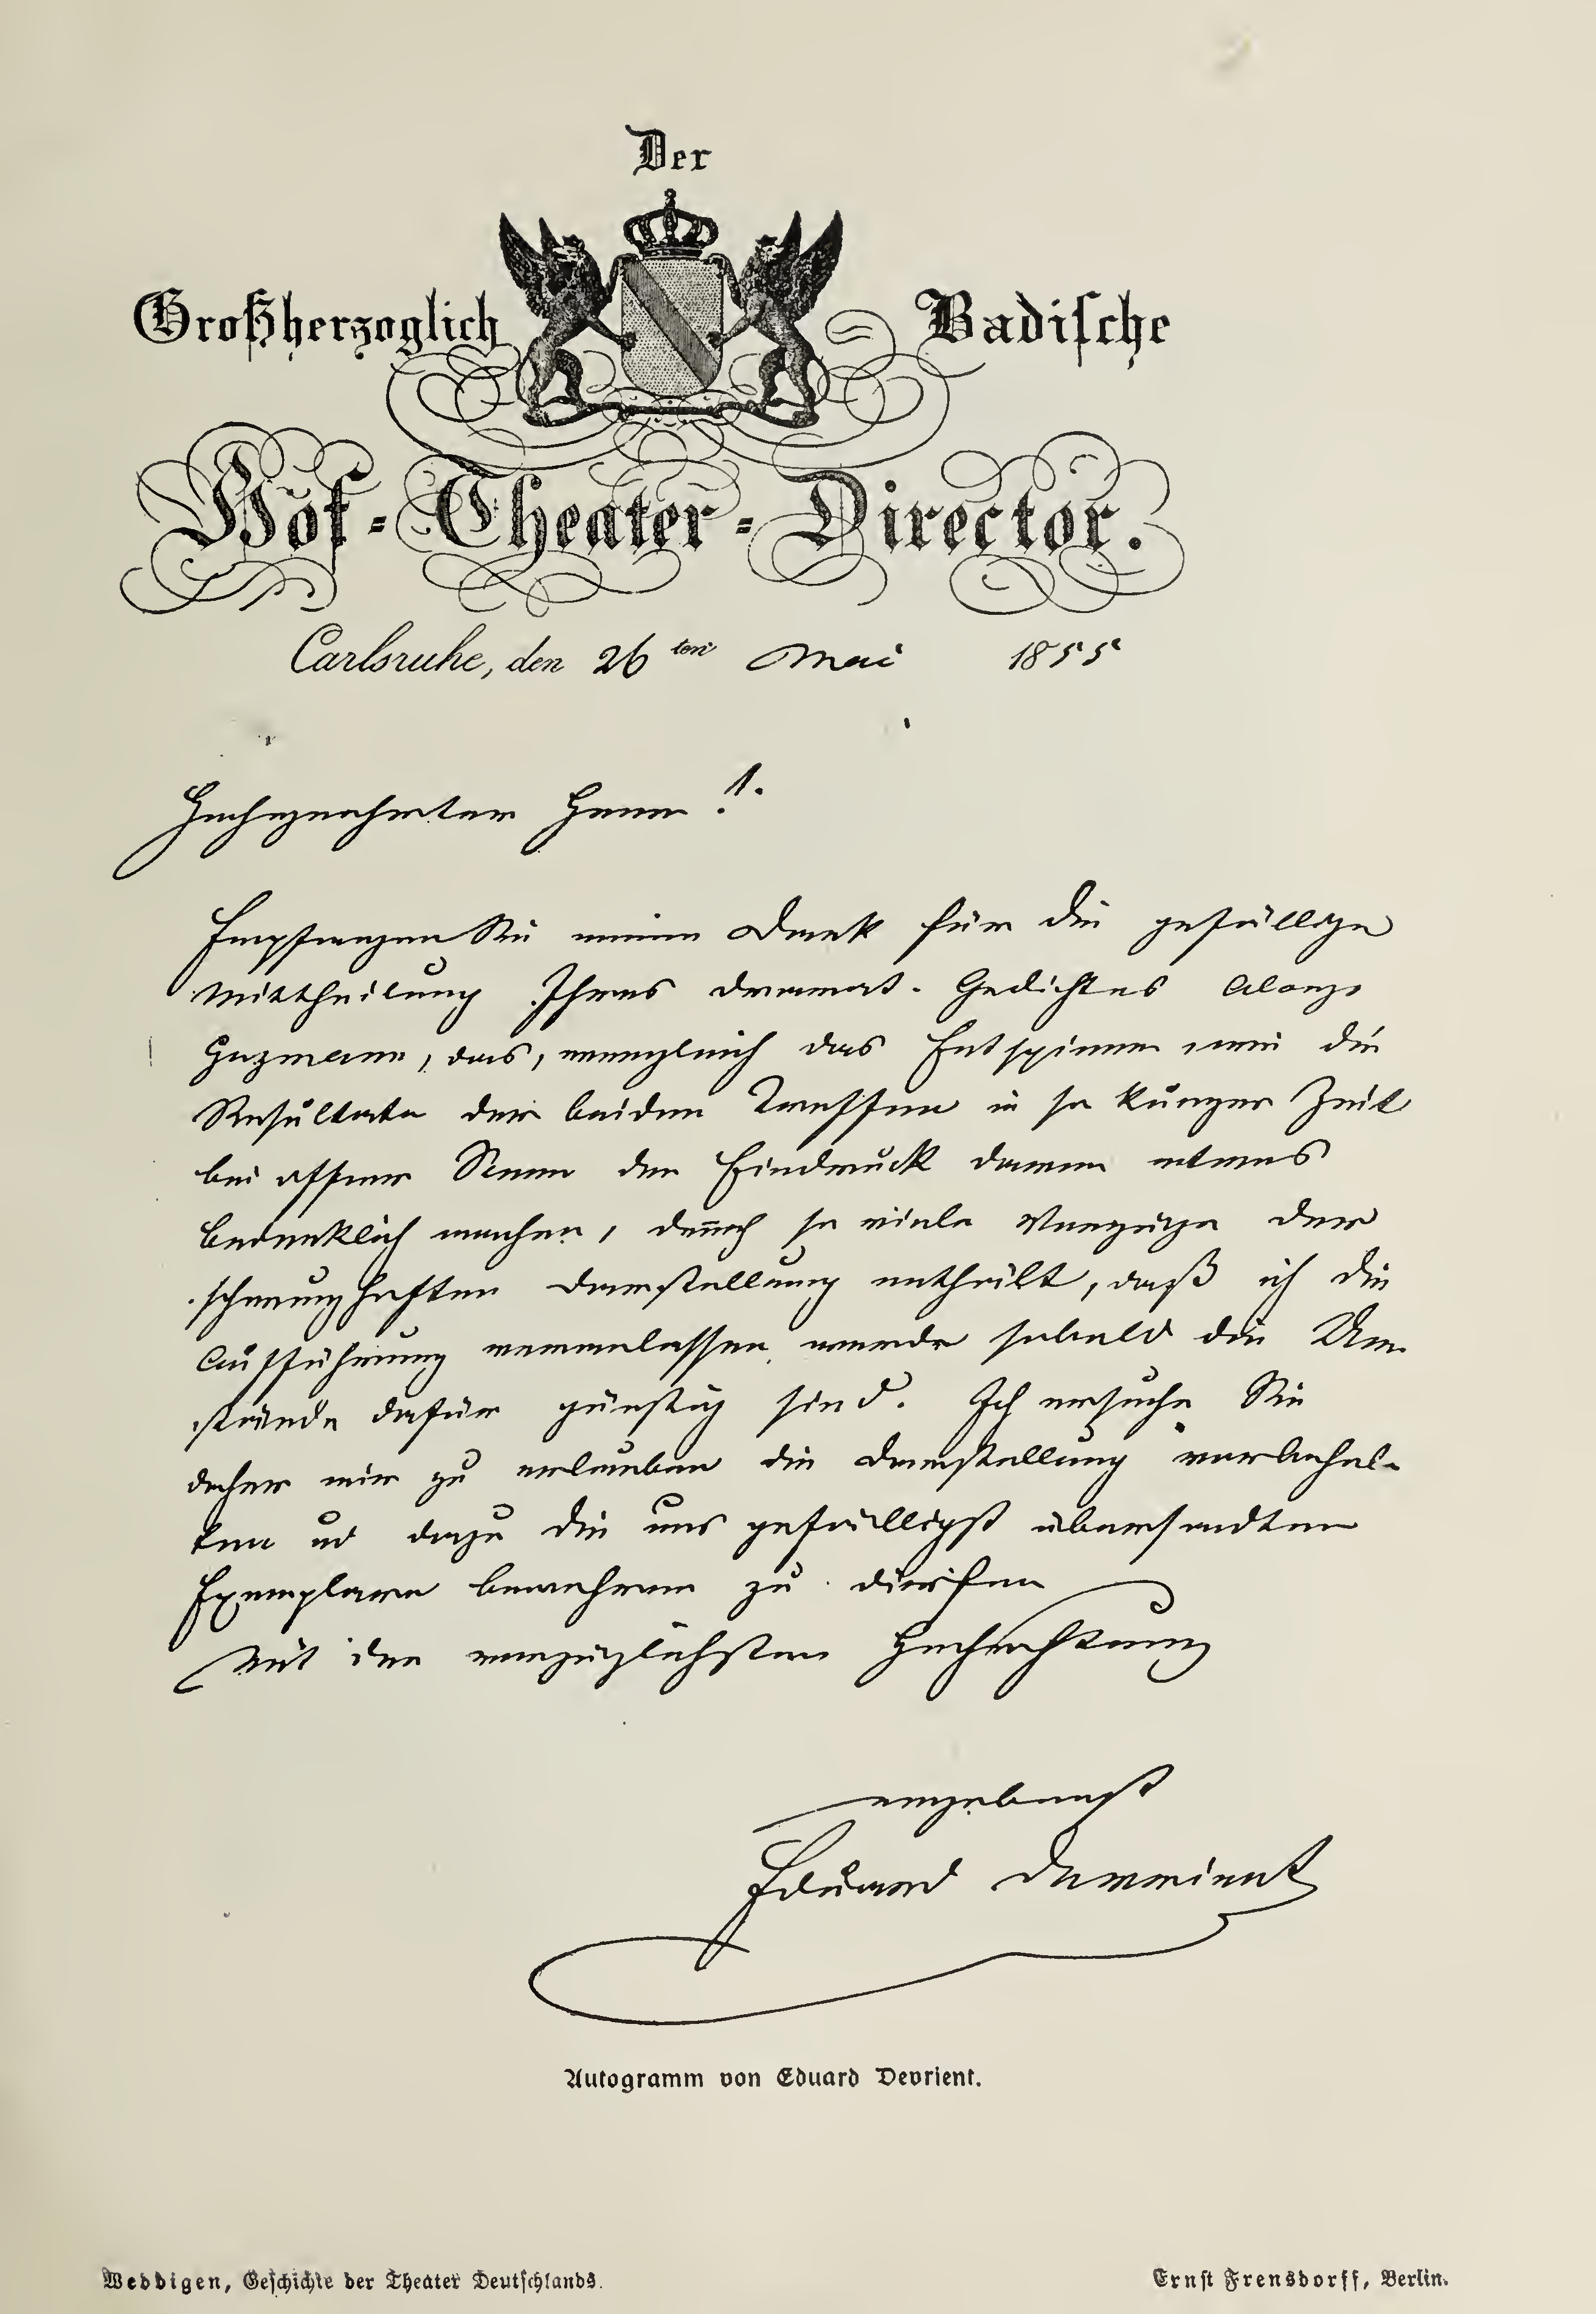 Der
Großherzoglich Badische
Hof-Theater-Director.
Carlsruhe, den 26ten Mai 1855
Hochgeehrter Herr!
Empfangen Sie meinen Dank für die gefällige
Mittheilung Ihres dramat. Gedichtes Alonzo
Guzmann, das, wenngleich das Entspinnen wie die
Resultate der beiden Treffen in so kurzer Zeit
bei offner Scene den Eindruck daran etwas
bedenklich machen, dennoch so viele Vorzüge der
schwunghaften Darstellung enthält, daß ich die
Aufführung veranlassen werde sobald die Um-
stände dafür günstig sind. Ich ersuche Sie
daher mir zu erlauben die Darstellung vorbehal-
ten und dazu die uns gefälligst übersandten
Exemplare bewahren zu dürfen
Mit der vorzüglichsten Hochachtung
ergebenst
Eduard Devrient
Autogramm von Eduard Devrient.
Weddigen, Geschichte der Theater Deutschlands.
Ernst Frensdorff, Berlin.